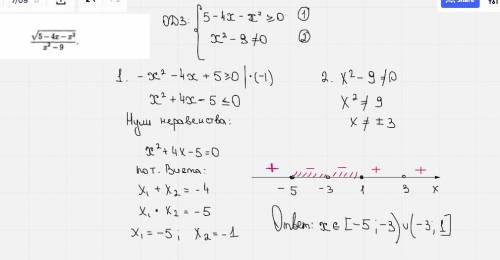 √5−4x−x²
x²−9,
ОДЗ: { 5-4x-x² ≥0 ①
x²-9≠0 ②
1. -x²-4x+5≥0 |·(-1)
x²+4x-5≤0
Нули неравенства:
x²+4x-5=0
по т. Виета:
x₁+x₂=-4
x₁·x₂=-5
x₁=-5; x₂=-1
2. x²-9≠0
x²≠9
x≠±3
+ − − + +
-5 -3 1 3 x
Ответ: x∈[-5;-3)∪(-3;1]